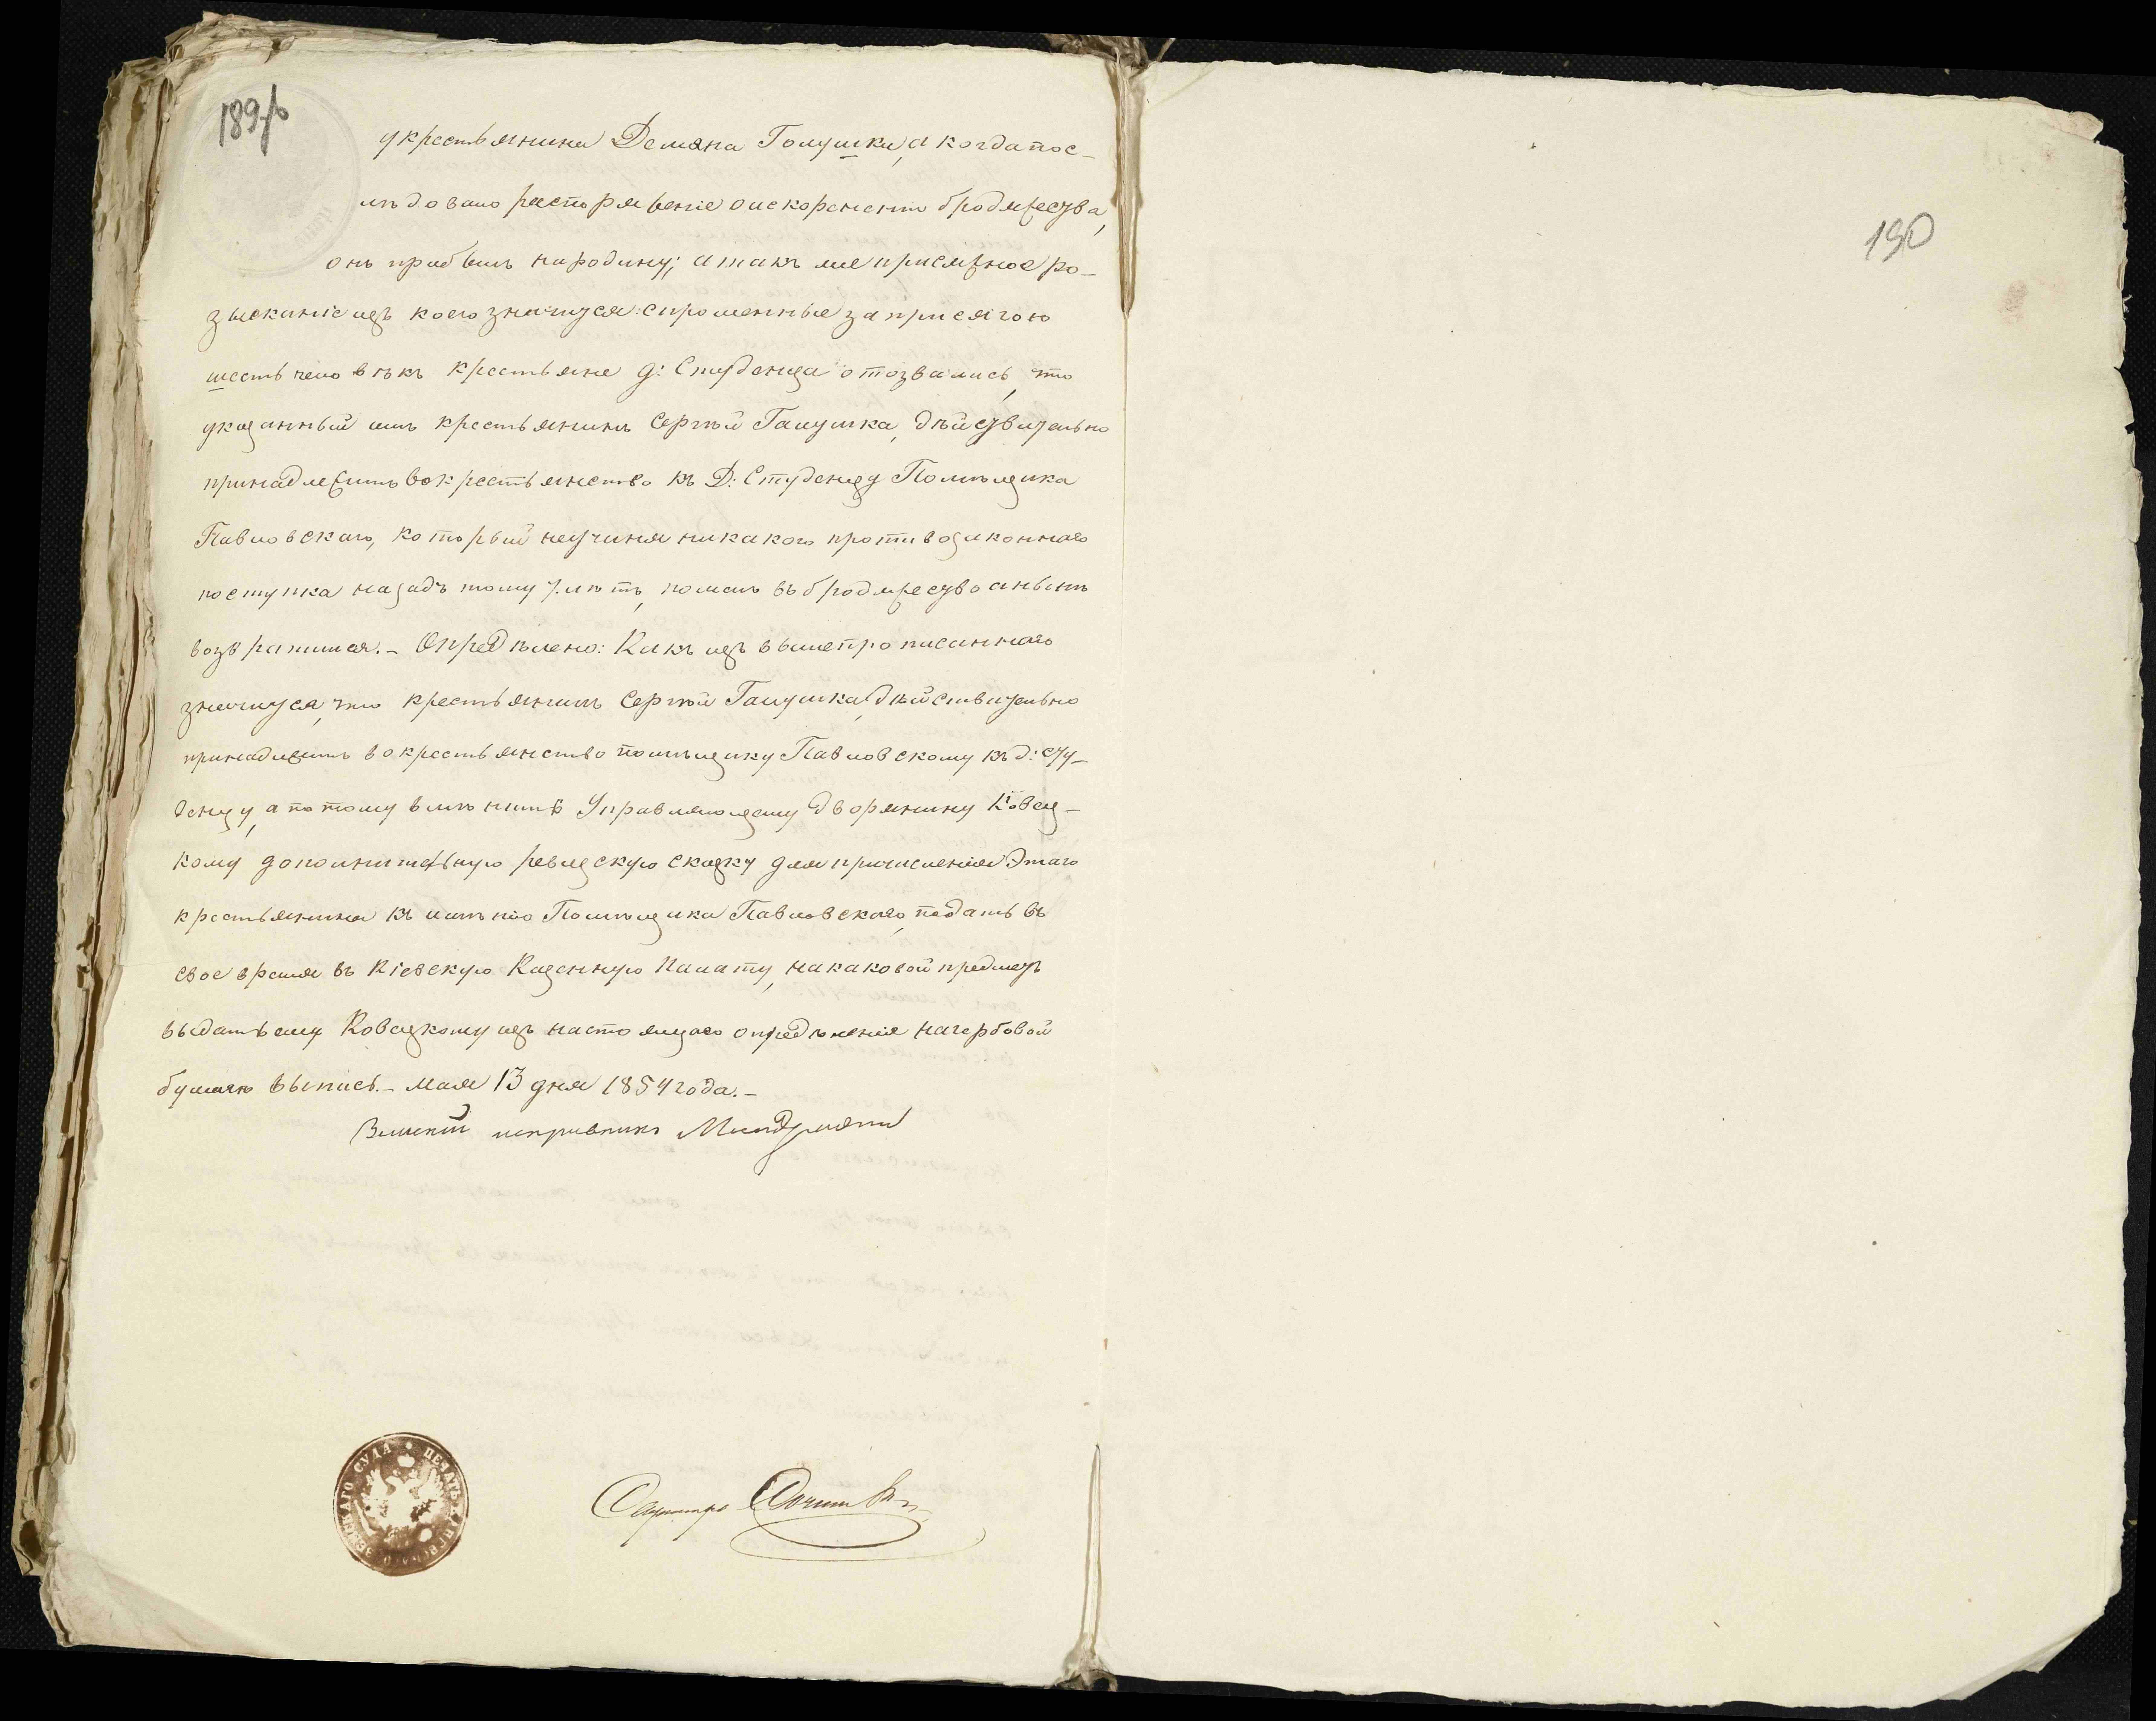 189об
укрестьянина Демяна Голушки, а когда пос-
лѣдовало распоряженіе оискорененіи бродяжества,
онъ прибылъ народину; атакъ жеприсяжное ро-
зысканіе изъ коего значится: спрошенные заприсягою
шесть человѣкъ крестьяне д: Студенца отозвались, что
указанный имъ крестьянинъ Сергѣй Галушка, дѣйствительно
принадлежитъ вокрестьянство къ Д: Студенцу Помѣщика
Павловскаго, который неучиня никакого противозаконнаго
поступка назадъ тому 7. лѣтъ, пошолъ въ бродяжество анынѣ
возвратился. - Опредѣлено: Какъ изъ вышепрописаннаго
значится, что крестьянинъ Сергѣй Галушка, дѣйствительно
принадлежитъ вокрестьянство помѣщику Павловскому къ д: Сту-
денцу, а потому вмѣнить Управляющему Дворянину Ковец-
кому дополнительную ревизскую сказку для причисленія Этаго
крестьянина къ имѣнію Помѣщика Павловскаго, подать въ
свое время въ Кіевскую Казенную Палату, накаковой предметъ
выдать ему Ковецкому изъ настоящаго опредѣленія нагербовой
бумагѣ выпись. - Мая 13 дня 1854 года. -
Земскій исправникъ
ПЕЧАТЬ ЗЕМСКАГО СУДА
190